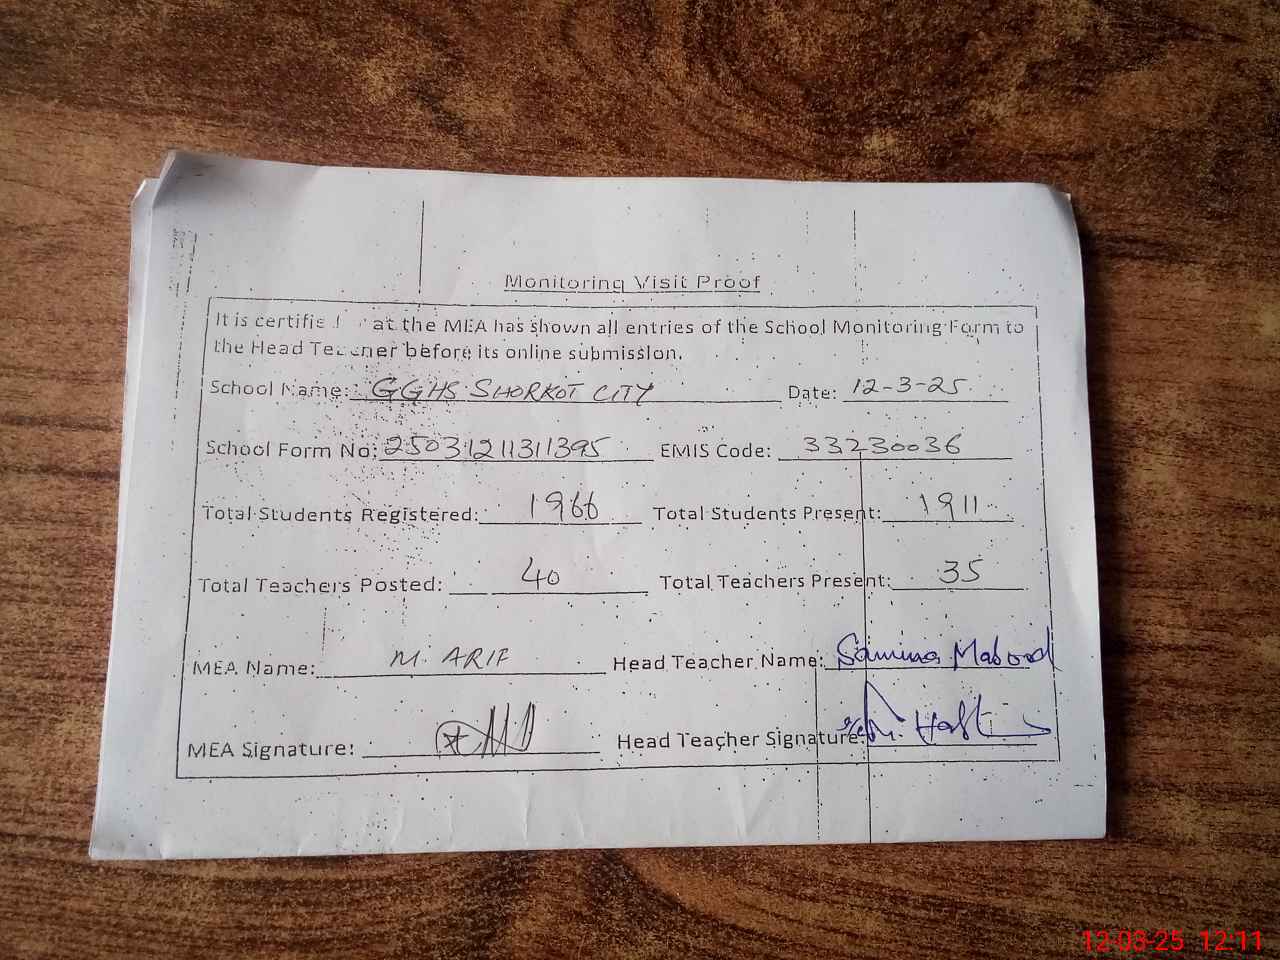 Monitoring Visit Proof
It is certified that the MEA has shown all entries of the School Monitoring Form to
the Head Teacher before its online submission.
School Name: GGHS SHORKOT CITY Date: 12-3-25
School Form No: 25031211311395 EMIS Code: 33230036
Total Students Registered: 1966 Total Students Present: 1911
Total Teachers Posted: 40 Total Teachers Present: 35
MEA Name: M. ARIF Head Teacher Name: Samina Mabood
MEA Signature: Head Teacher Signature:
12-03-25 12:11